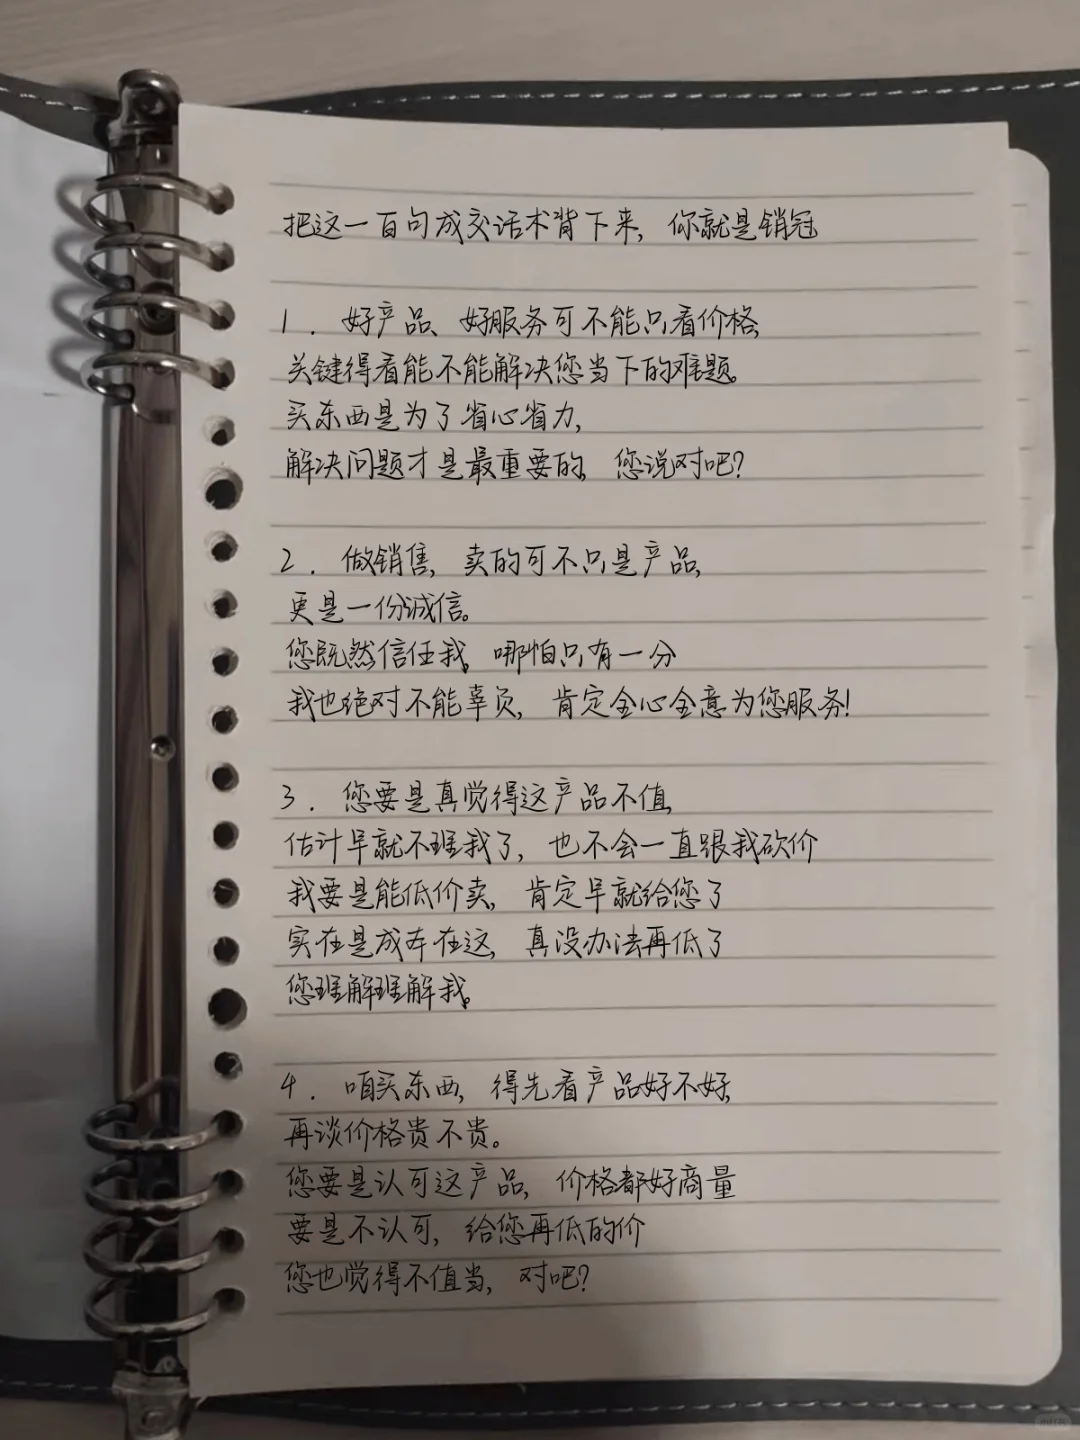 把这一百句成交话术背下来，你就是销冠
1．好产品、好服务可不能只看价格，
关键得看能不能解决您当下的难题。
买东西是为了省心省力，
解决问题才是最重要的，您说对吧？
2．做销售，卖的可不只是产品，
更是一份诚信。
您既然信任我，哪怕只有一分
我也绝对不能辜负，肯定全心全意为您服务！
3．您要是真觉得这产品不值，
估计早就不理我了，也不会一直跟我砍价
我要是能低价卖，肯定早就给您了
实在是成本在这，真没办法再低了
您理解理解我。
4．咱买东西，得先看产品好不好，
再谈价格贵不贵。
您要是认可这产品，价格都好商量
要是不认可，给您再低的价
您也觉得不值当，对吧？